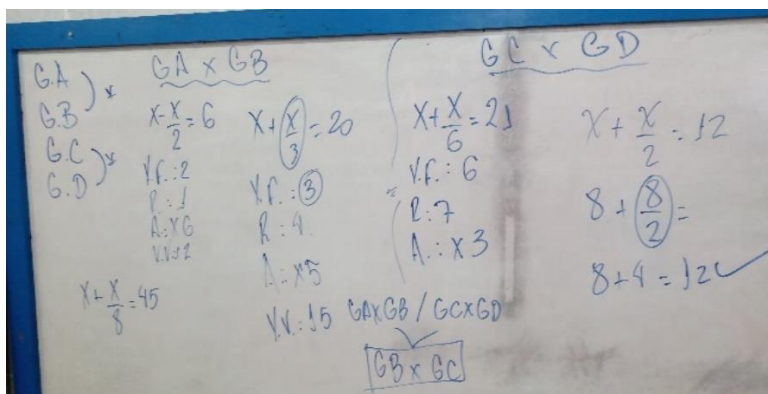 G.A
G.B
G.C
G.D
GA x GB
x-x/2=6
V.F.:2
R:1
A.:x6
V.V:12
x+x/3=20
V.F.:3
R:4
A:x5
V.V.:15
x+x/8=45
GC x GD
x+x/6=21
V.F.:6
R:7
A.:x3
x+x/2=12
8+8/2=
8+4=12
GAxGB / GCxGD
GB x GC